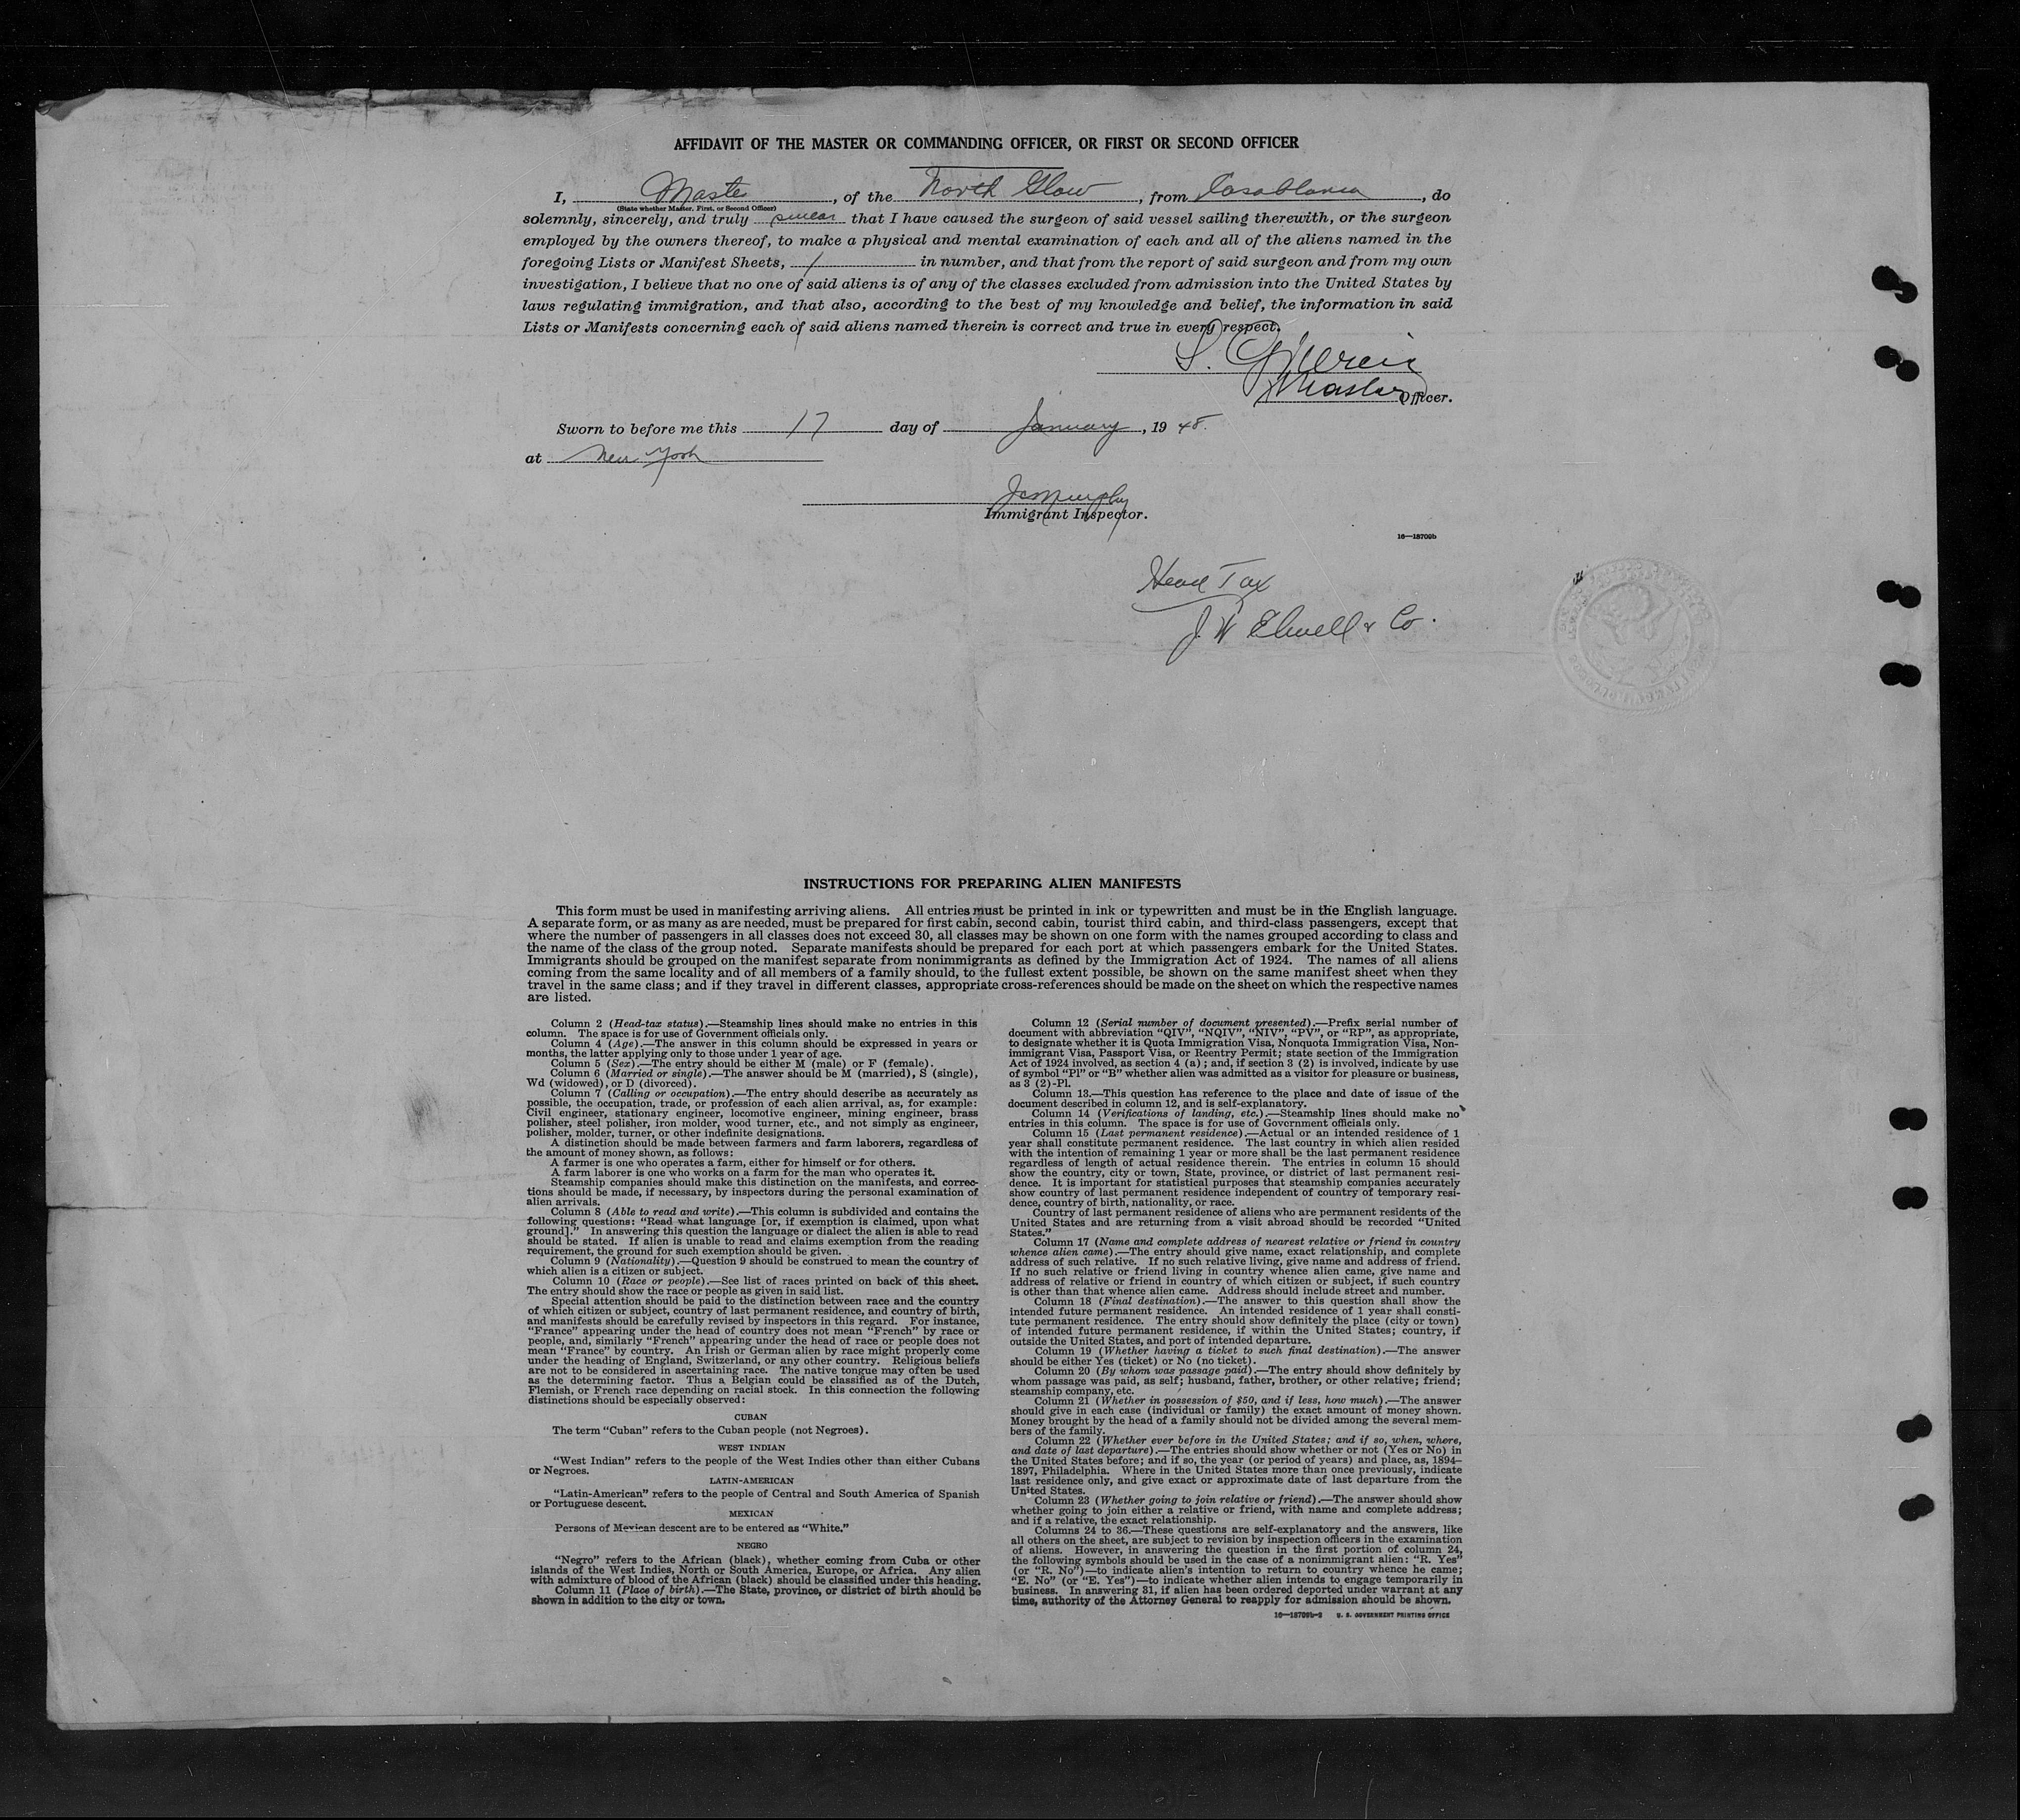 AFFIDAVIT OF THE MASTER OR COMMANDING OFFICER, OR FIRST OR SECOND OFFICER
I, Master, of the North Glow, from Casablanca, do
(State whether Master, First, or Second Officer)
solemnly, sincerely, and truly swear that I have caused the surgeon of said vessel sailing therewith, or the surgeon
employed by the owners thereof, to make a physical and mental examination of each and all of the aliens named in the
foregoing Lists or Manifest Sheets, 1 in number, and that from the report of said surgeon and from my own
investigation, I believe that no one of said aliens is of any of the classes excluded from admission into the United States by
laws regulating immigration, and that also, according to the best of my knowledge and belief, the information in said
Lists or Manifests concerning each of said aliens named therein is correct and true in every respect.
S.
Master Officer.
Sworn to before me this 17 day of January, 19 48.
at New York
JC Murphy
Immigrant Inspector.
16—18709b
Head Tax
J. W Elwell & Co.
INSTRUCTIONS FOR PREPARING ALIEN MANIFESTS
This form must be used in manifesting arriving aliens. All entries must be printed in ink or typewritten and must be in the English language.
A separate form, or as many as are needed, must be prepared for first cabin, second cabin, tourist third cabin, and third-class passengers, except that
where the number of passengers in all classes does not exceed 30, all classes may be shown on one form with the names grouped according to class and
the name of the class of the group noted. Separate manifests should be prepared for each port at which passengers embark for the United States.
Immigrants should be grouped on the manifest separate from nonimmigrants as defined by the Immigration Act of 1924. The names of all aliens
coming from the same locality and of all members of a family should, to the fullest extent possible, be shown on the same manifest sheet when they
travel in the same class; and if they travel in different classes, appropriate cross-references should be made on the sheet on which the respective names
are listed.
Column 2 (Head-tax status).—Steamship lines should make no entries in this
column. The space is for use of Government officials only.
Column 4 (Age).—The answer in this column should be expressed in years or
months, the latter applying only to those under 1 year of age.
Column 5 (Sex).—The entry should be either M (male) or F (female).
Column 6 (Married or single).—The answer should be M (married), S (single),
Wd (widowed), or D (divorced).
Column 7 (Calling or occupation).—The entry should describe as accurately as
possible, the occupation, trade, or profession of each alien arrival, as, for example:
Civil engineer, stationary engineer, locomotive engineer, mining engineer, brass
polisher, steel polisher, iron molder, wood turner, etc., and not simply as engineer,
polisher, molder, turner, or other indefinite designations.
A distinction should be made between farmers and farm laborers, regardless of
the amount of money shown, as follows:
A farmer is one who operates a farm, either for himself or for others.
A farm laborer is one who works on a farm for the man who operates it.
Steamship companies should make this distinction on the manifests, and correc-
tions should be made, if necessary, by inspectors during the personal examination of
alien arrivals.
Column 8 (Able to read and write).—This column is subdivided and contains the
following questions: "Read what language [or, if exemption is claimed, upon what
ground]." In answering this question the language or dialect the alien is able to read
should be stated. If alien is unable to read and claims exemption from the reading
requirement, the ground for such exemption should be given.
Column 9 (Nationality).—Question 9 should be construed to mean the country of
which alien is a citizen or subject.
Column 10 (Race or people).—See list of races printed on back of this sheet.
The entry should show the race or people as given in said list.
Special attention should be paid to the distinction between race and the country
of which citizen or subject, country of last permanent residence, and country of birth,
and manifests should be carefully revised by inspectors in this regard. For instance,
"France" appearing under the head of country does not mean "French" by race or
people, and, similarly "French" appearing under the head of race or people does not
mean "France" by country. An Irish or German alien by race might properly come
under the heading of England, Switzerland, or any other country. Religious beliefs
are not to be considered in ascertaining race. The native tongue may often be used
as the determining factor. Thus a Belgian could be classified as of the Dutch,
Flemish, or French race depending on racial stock. In this connection the following
distinctions should be especially observed:
CUBAN
The term "Cuban" refers to the Cuban people (not Negroes).
WEST INDIAN
"West Indian" refers to the people of the West Indies other than either Cubans
or Negroes.
LATIN-AMERICAN
"Latin-American" refers to the people of Central and South America of Spanish
or Portuguese descent.
MEXICAN
Persons of Mexican descent are to be entered as "White."
NEGRO
"Negro" refers to the African (black), whether coming from Cuba or other
islands of the West Indies, North or South America, Europe, or Africa. Any alien
with admixture of blood of the African (black) should be classified under this heading.
Column 11 (Place of birth).—The State, province, or district of birth should be
shown in addition to the city or town.
Column 12 (Serial number of document presented).—Prefix serial number of
document with abbreviation "QIV", "NQIV", "NIV", "PV", or "RP", as appropriate,
to designate whether it is Quota Immigration Visa, Nonquota Immigration Visa, Non-
immigrant Visa, Passport Visa, or Reentry Permit; state section of the Immigration
Act of 1924 involved, as section 4 (a); and, if section 3 (2) is involved, indicate by use
of symbol "Pl" or "B" whether alien was admitted as a visitor for pleasure or business,
as 3 (2)-Pl.
Column 13.—This question has reference to the place and date of issue of the
document described in column 12, and is self-explanatory.
Column 14 (Verifications of landing, etc.).—Steamship lines should make no
entries in this column. The space is for use of Government officials only.
Column 15 (Last permanent residence).—Actual or an intended residence of 1
year shall constitute permanent residence. The last country in which alien resided
with the intention of remaining 1 year or more shall be the last permanent residence
regardless of length of actual residence therein. The entries in column 15 should
show the country, city or town, State, province, or district of last permanent resi-
dence. It is important for statistical purposes that steamship companies accurately
show country of last permanent residence independent of country of temporary resi-
dence, country of birth, nationality, or race.
Country of last permanent residence of aliens who are permanent residents of the
United States and are returning from a visit abroad should be recorded "United
States."
Column 17 (Name and complete address of nearest relative or friend in country
whence alien came).—The entry should give name, exact relationship, and complete
address of such relative. If no such relative living, give name and address of friend.
If no such relative or friend living in country whence alien came, give name and
address of relative or friend in country of which citizen or subject, if such country
is other than that whence alien came. Address should include street and number.
Column 18 (Final destination).—The answer to this question shall show the
intended future permanent residence. An intended residence of 1 year shall consti-
tute permanent residence. The entry should show definitely the place (city or town)
of intended future permanent residence, if within the United States; country, if
outside the United States, and port of intended departure.
Column 19 (Whether having a ticket to such final destination).—The answer
should be either Yes (ticket) or No (no ticket).
Column 20 (By whom was passage paid).—The entry should show definitely by
whom passage was paid, as self; husband, father, brother, or other relative; friend;
steamship company, etc.
Column 21 (Whether in possession of $50, and if less, how much).—The answer
should give in each case (individual or family) the exact amount of money shown.
Money brought by the head of a family should not be divided among the several mem-
bers of the family.
Column 22 (Whether ever before in the United States; and if so, when, where,
and date of last departure).—The entries should show whether or not (Yes or No) in
the United States before; and if so, the year (or period of years) and place, as, 1894–
1897, Philadelphia. Where in the United States more than once previously, indicate
last residence only, and give exact or approximate date of last departure from the
United States.
Column 23 (Whether going to join relative or friend).—The answer should show
whether going to join either a relative or friend, with name and complete address;
and if a relative, the exact relationship.
Columns 24 to 36.—These questions are self-explanatory and the answers, like
all others on the sheet, are subject to revision by inspection officers in the examination
of aliens. However, in answering the question in the first portion of column 24,
the following symbols should be used in the case of a nonimmigrant alien: "R. Yes"
(or "R. No")—to indicate alien's intention to return to country whence he came;
"E. No" (or "E. Yes")—to indicate whether alien intends to engage temporarily in
business. In answering 31, if alien has been ordered deported under warrant at any
time, authority of the Attorney General to reapply for admission should be shown.
16—18709b-2 U. S. GOVERNMENT PRINTING OFFICE